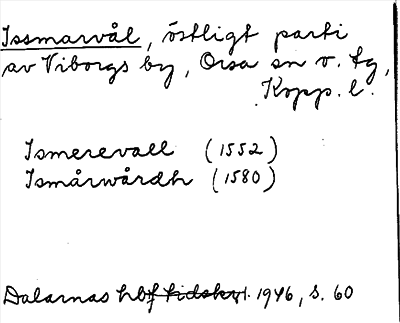 Issmarvål, östligt parti
av Viborgs by, Orsa sn o. tg,
Kopp. l.
Ismerevall (1552)
Ismårwårdh (1580)
Dalarnas hbf 1946, s. 60